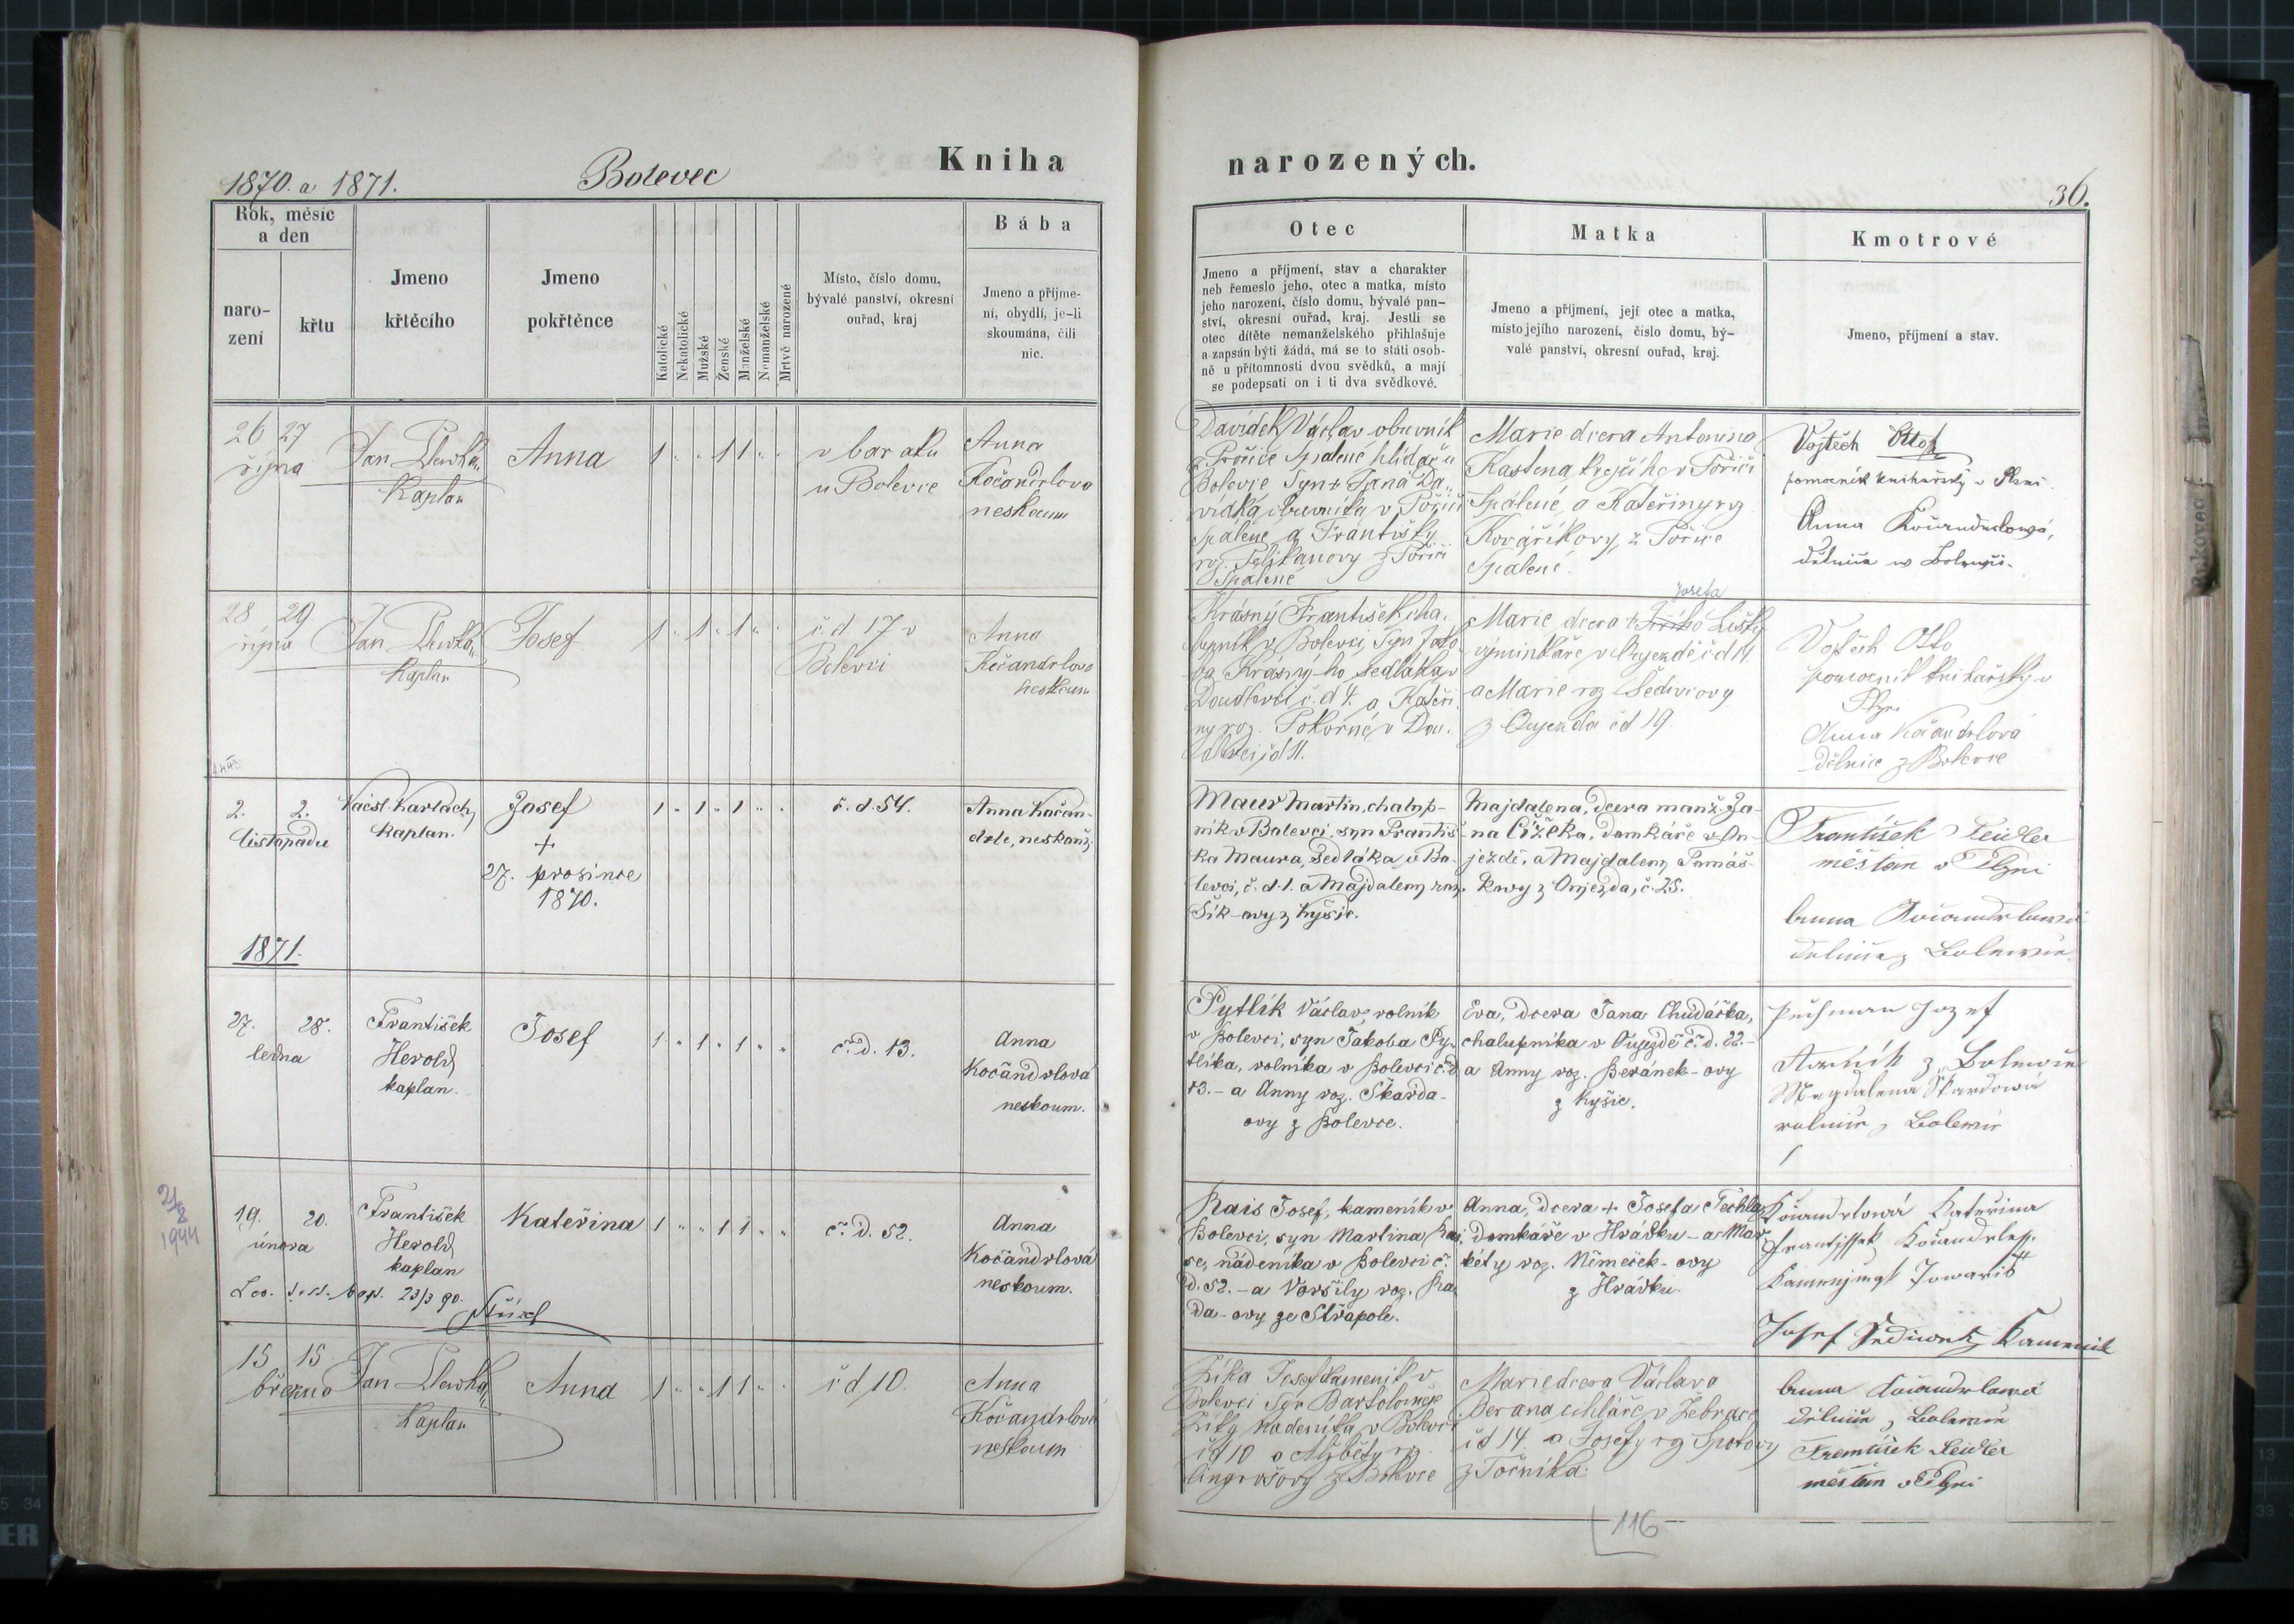 1870. a 1871.
Bolevec
Kniha
narozených.
36.
Rok, měsíc
a den
naro-
zení
křtu
Jmeno
křtěcího
Jmeno
pokřtěnce
Katolické
Nekatolické
Mužské
Ženské
Manželské
Nemanželské
Mrtvě narozené
Místo, číslo domu,
bývalé panství, okresní
ouřad, kraj
Bába
Jmeno a příjme-
ní, obydlí, je-li
skoumána, čili
nic.
Otec
Jmeno a příjmení, stav a charakter
neb řemeslo jeho, otec a matka, místo
jeho narození, číslo domu, bývalé pan-
ství, okresní ouřad, kraj. Jestli se
otec dítěte nemanželského přihlašuje
a zapsán býti žádá, má se to státi osob-
ně u přítomnosti dvou svědků, a mají
se podepsati on i ti dva svědkové.
Matka
Jmeno a příjmení, její otec a matka,
místo jejího narození, číslo domu, bý-
valé panství, okresní ouřad, kraj.
Kmotrové
Jmeno, příjmení a stav.
26 27
října
Jan
Kaplan
Anna
1 " " 1 1 " "
v baráku
u Bolevce
Anna
Kočandrlova
neskoum
Davídek Václav obuvník
z Poříče Spálené hlídač u
Bolevce Syn Jana Da
vídka obuvníka v Poříčí
Spálené a Františky
roz. Pelikanovy z Poříčí
Spalené
Marie dcera Antonína
Kastena krejčího v Poříčí
Spálené a Kateřiny rz
Kovaříkovy z Poříče
Spalené.
Vojtěch Otto
pomocník knihařský v Plzni.
Anna Kočandrlová,
dělnice w Bolewci.
28 29
října
Jan
Kaplan
Josef
1 " 1 " 1 " "
č. d. 17 v
Bolevci
Anna
Kočandrlova
neskoum
Krásný František cha.
lupník v Bolevci, Syn Jako
ba Krásnýho sedláka v
Doudlevci č. d 4. a Kateři
ny roz. Pokorné, v Dou.
dlevci čd 11.
Josefa
Marie dcera Lišky
výminkáře v Oujezdě č d 19.
a Marie rz Šediviovy
z Oujezda čd 19.
Vojtěch Otto
pomocník knihařský v
Plzni
Anna Kočandrlová
dělnice z Bolevce
2. 2.
listopadu
Václ. Karlach,
kaplan.
Josef
+
27. prosince
1870.
1 " 1 " 1 " "
č. d. 54.
Anna Kočan-
drle, neskouš.
Maur Martin, chalup-
ník v Bolevci, syn Františ-
ka Maura, sedláka v Bo-
levci, č. d. 1. a Majdaleny roz.
Šík-ovy z Kyšic.
Majdalena, dcera manž. Ja-
na Čížeka, domkáře v Ou-
jezdě, a Majdaleny Tomáš-
kovy z Oujezda, č. 25.
František Feidler
měšťan v Plzni
Anna Kočandrlowá
dělnice z Bolewce.
1871.
27. 28.
ledna
František
Herold,
kaplan.
Josef
1 " 1 " 1 " "
č. d. 13.
Anna
Kočandrlová
neskoum.
Pytlík Václav, rolník
v Bolevci, syn Jakoba Py-
tlíka, rolníka v Bolevci č. d
13. - a Anny roz. Škarda-
ovy z Bolevce.
Eva, dcera Jana Chudáčka,
chalupníka v Oujezdě č. d. 22. -
a Anny roz. Beránek-ovy
z Kyšic.
Jozef
z Bolewce
Magdalena Skardowa
rolnice z Bolewce
2/8
1944
19. 20.
února
František
Herold,
kaplan
Kateřina
1 " " 1 1 " "
č. d. 52.
Anna
Kočandrlová
neskoum.
23/3 90.
Rais Josef, kameník v
Bolevci, syn Martina Rai.
se, nádeníka v Bolevci č.
d. 52. - a Voršily roz. Ra
da-ovy ze Střapole.
Anna, dcera + Josefa Techla,
domkáře v Hrádku - a Mar
kéty roz. Němeček-ovy
z Hrádku.
Kočandrlowá Kateřina
Frantissek Kočandrle
Josef Kamenik
15 15
března
Jan
Kaplan
Anna
1 " " 1 1 " "
č d 10.
Anna
Kočandrlová
neskoum
Zíka Josef kameník v
Bolevci Syn Bartoloměje
Zíky nádeníka v Bolevci
čd 10 a Alžběty rz.
z Bolevce
Marie dcera Václava
Berana cihláře v Žebrace
čd 14. a Josefy rz Sporovy
z Točníka.
Anna Kočandrlowá
dělnice z Bolewce
František Feidler
měšťan v Plzni
116